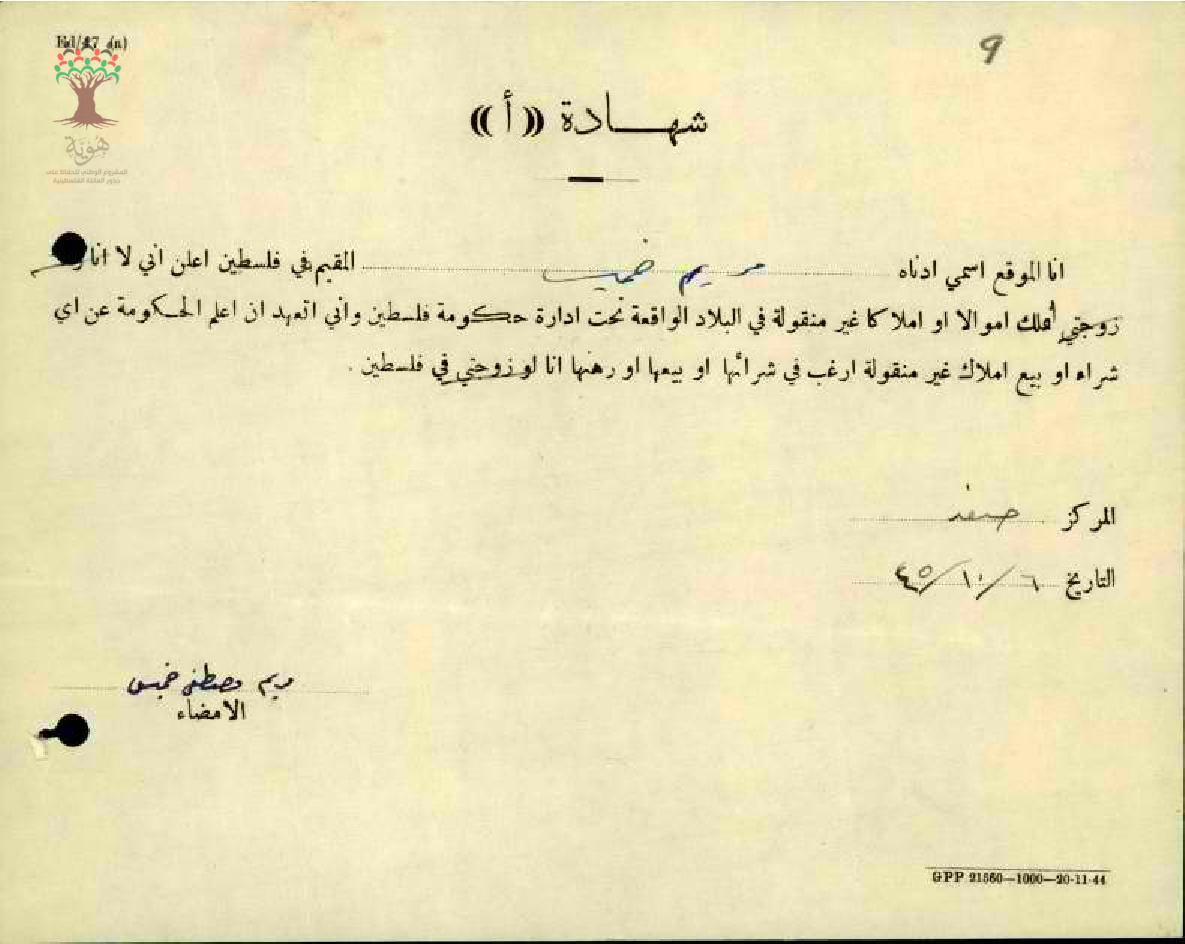 Ed/47 (n)
9
هُوِيَّة
المشروع الوطني للحفاظ على
جذور العائلة الفلسطينية
شهـــادة «أ»
انا الموقع اسمي ادناه مريم خميس المقيم في فلسطين اعلن اني لا انا ولا
زوجتي أملك اموالا او املاكا غير منقولة في البلاد الواقعة تحت ادارة حكومة فلسطين واني اتعهد ان اعلم الحكومة عن اي
شراء او بيع املاك غير منقولة ارغب في شرائها او بيعها او رهنها انا او زوجتي في فلسطين .
المركز صفد
التاريخ ٦/١٠/٤٥
مريم مصطفى خميس
الامضاء
GPP 21560—1000—20-11-44